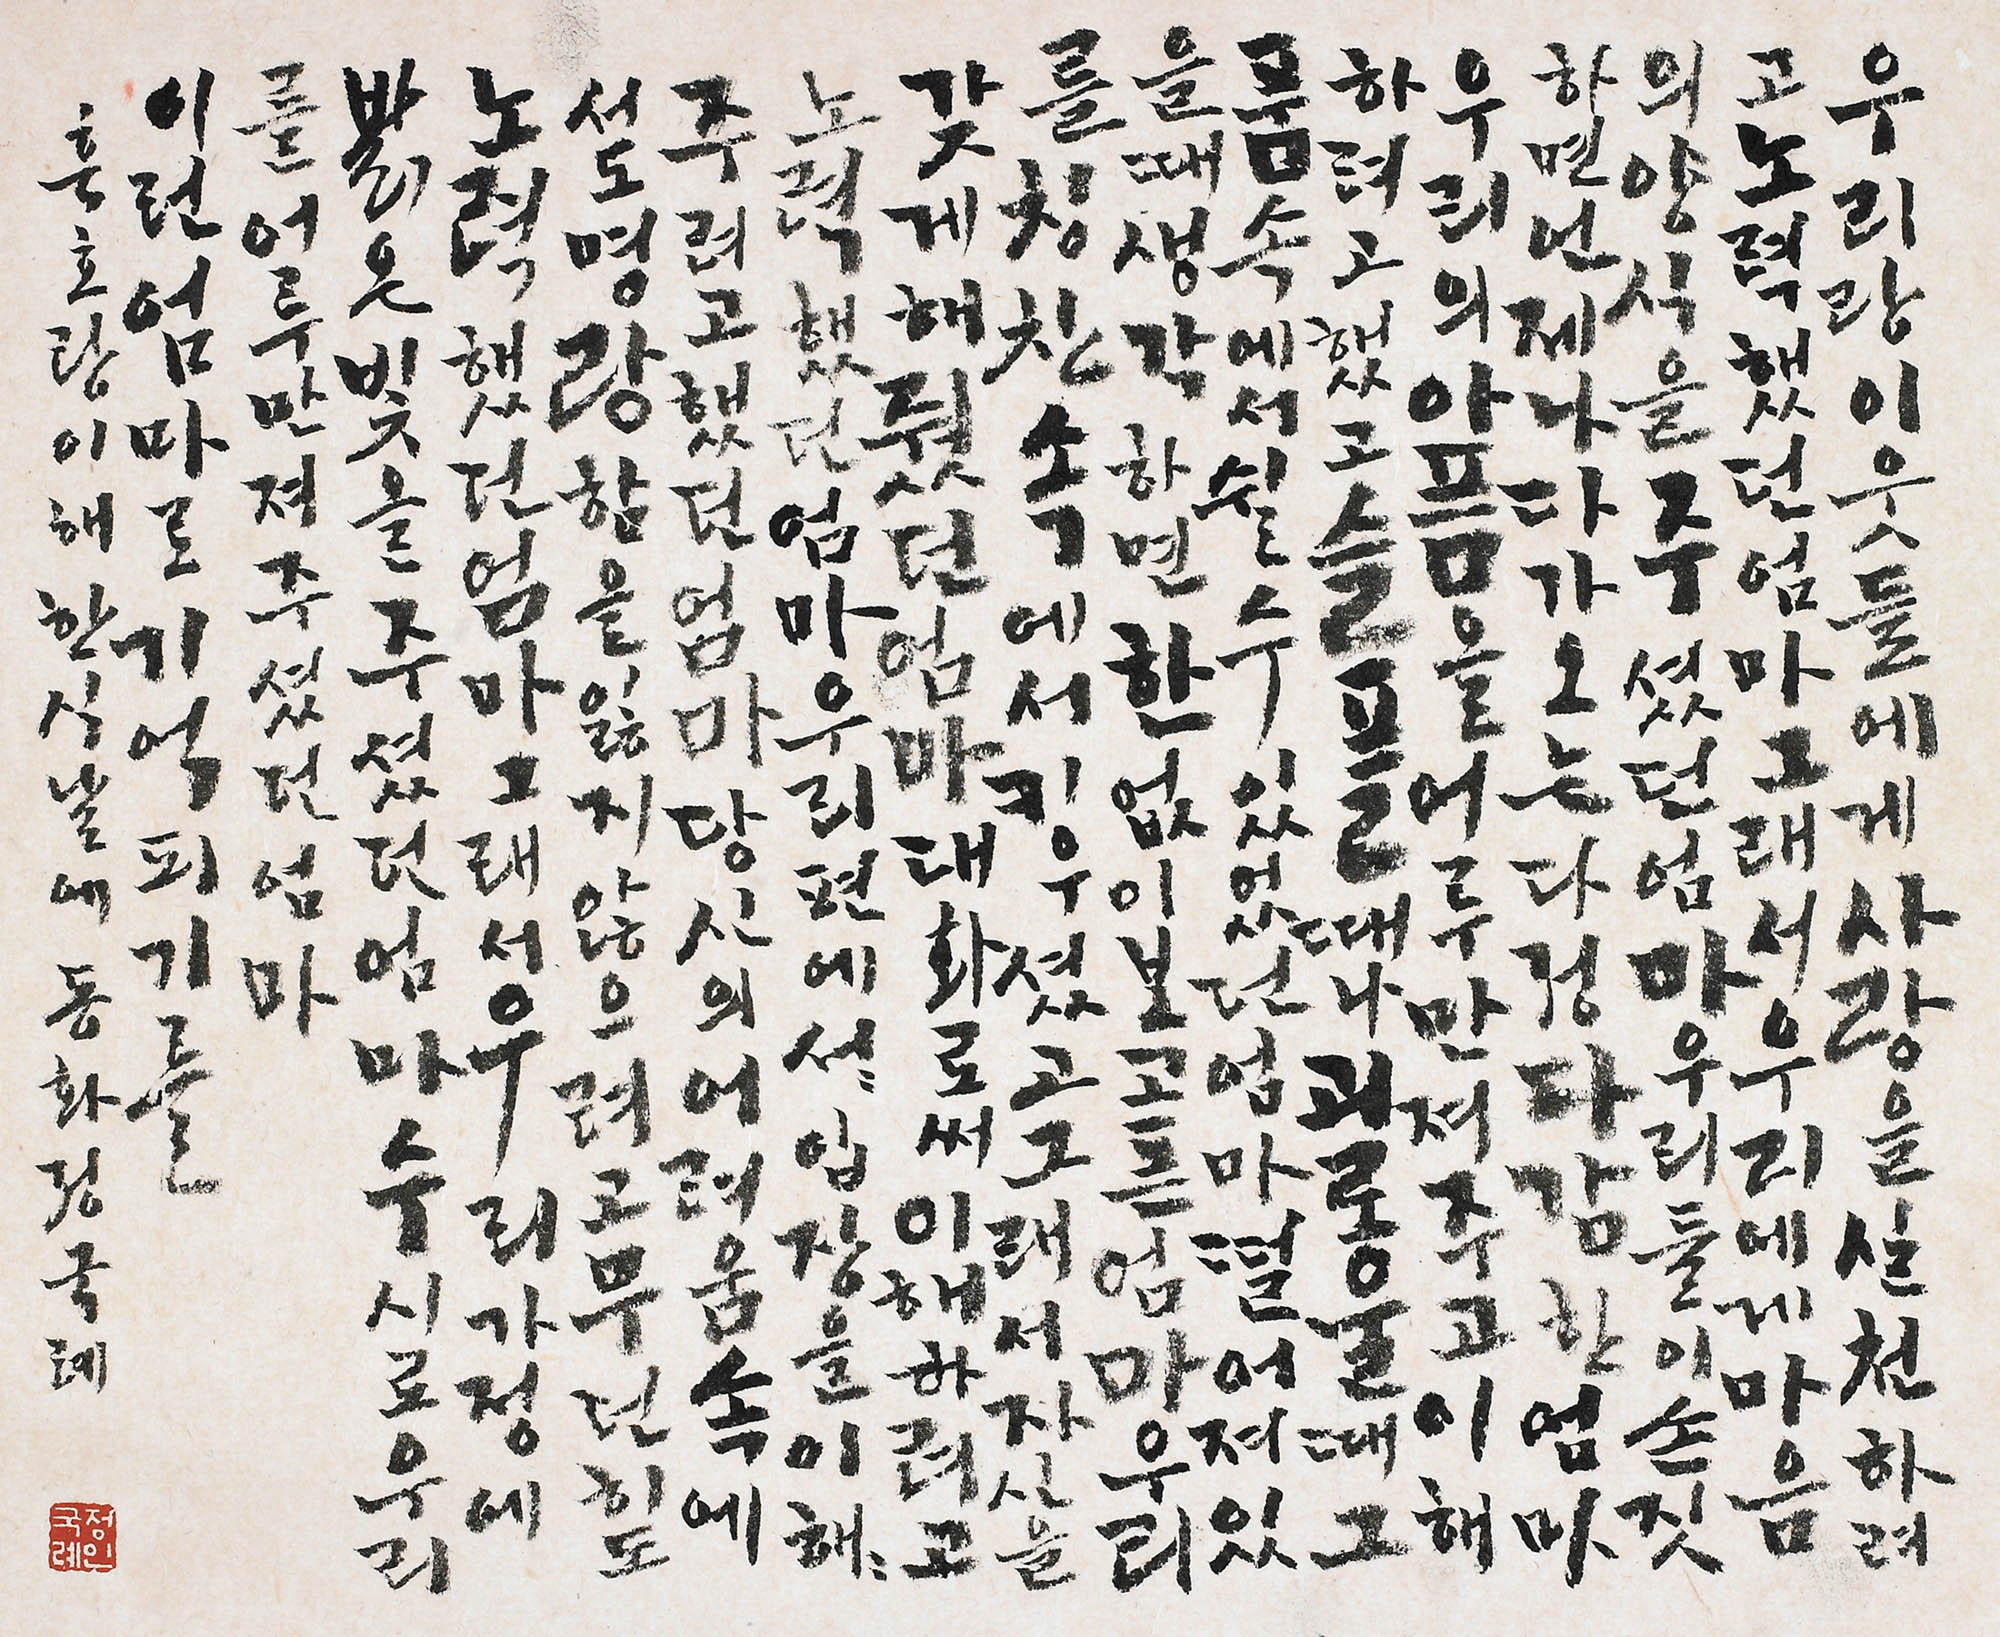 우리랑이웃들에게사랑을실천하려
고노력했던엄마그래서우리에게마음
의양식을주셨던엄마우리들이손짓
하면언제나다가오는다정다감한엄마
우리의아픔을어루만져주고이해
하려고했고슬플때나괴로울때그
품속에서쉴수있었던엄마떨어져있
을때생각하면한없이보고픈엄마우리
를칭찬속에서키우셨고그래서자신을
갖게해줬던엄마대화로써이해하려고
노력했던엄마우리편에서입장을이해
주려고했던엄마당신의어려움속에
서도명랑함을잃지않으려고무던히도
노력했던엄마그래서우리가정에
밝은빛을주셨던엄마수시로우리
를어루만져주셨던엄마
이런엄마로기억되기를
흑호랑이해한식날에동화정국례
정인국례